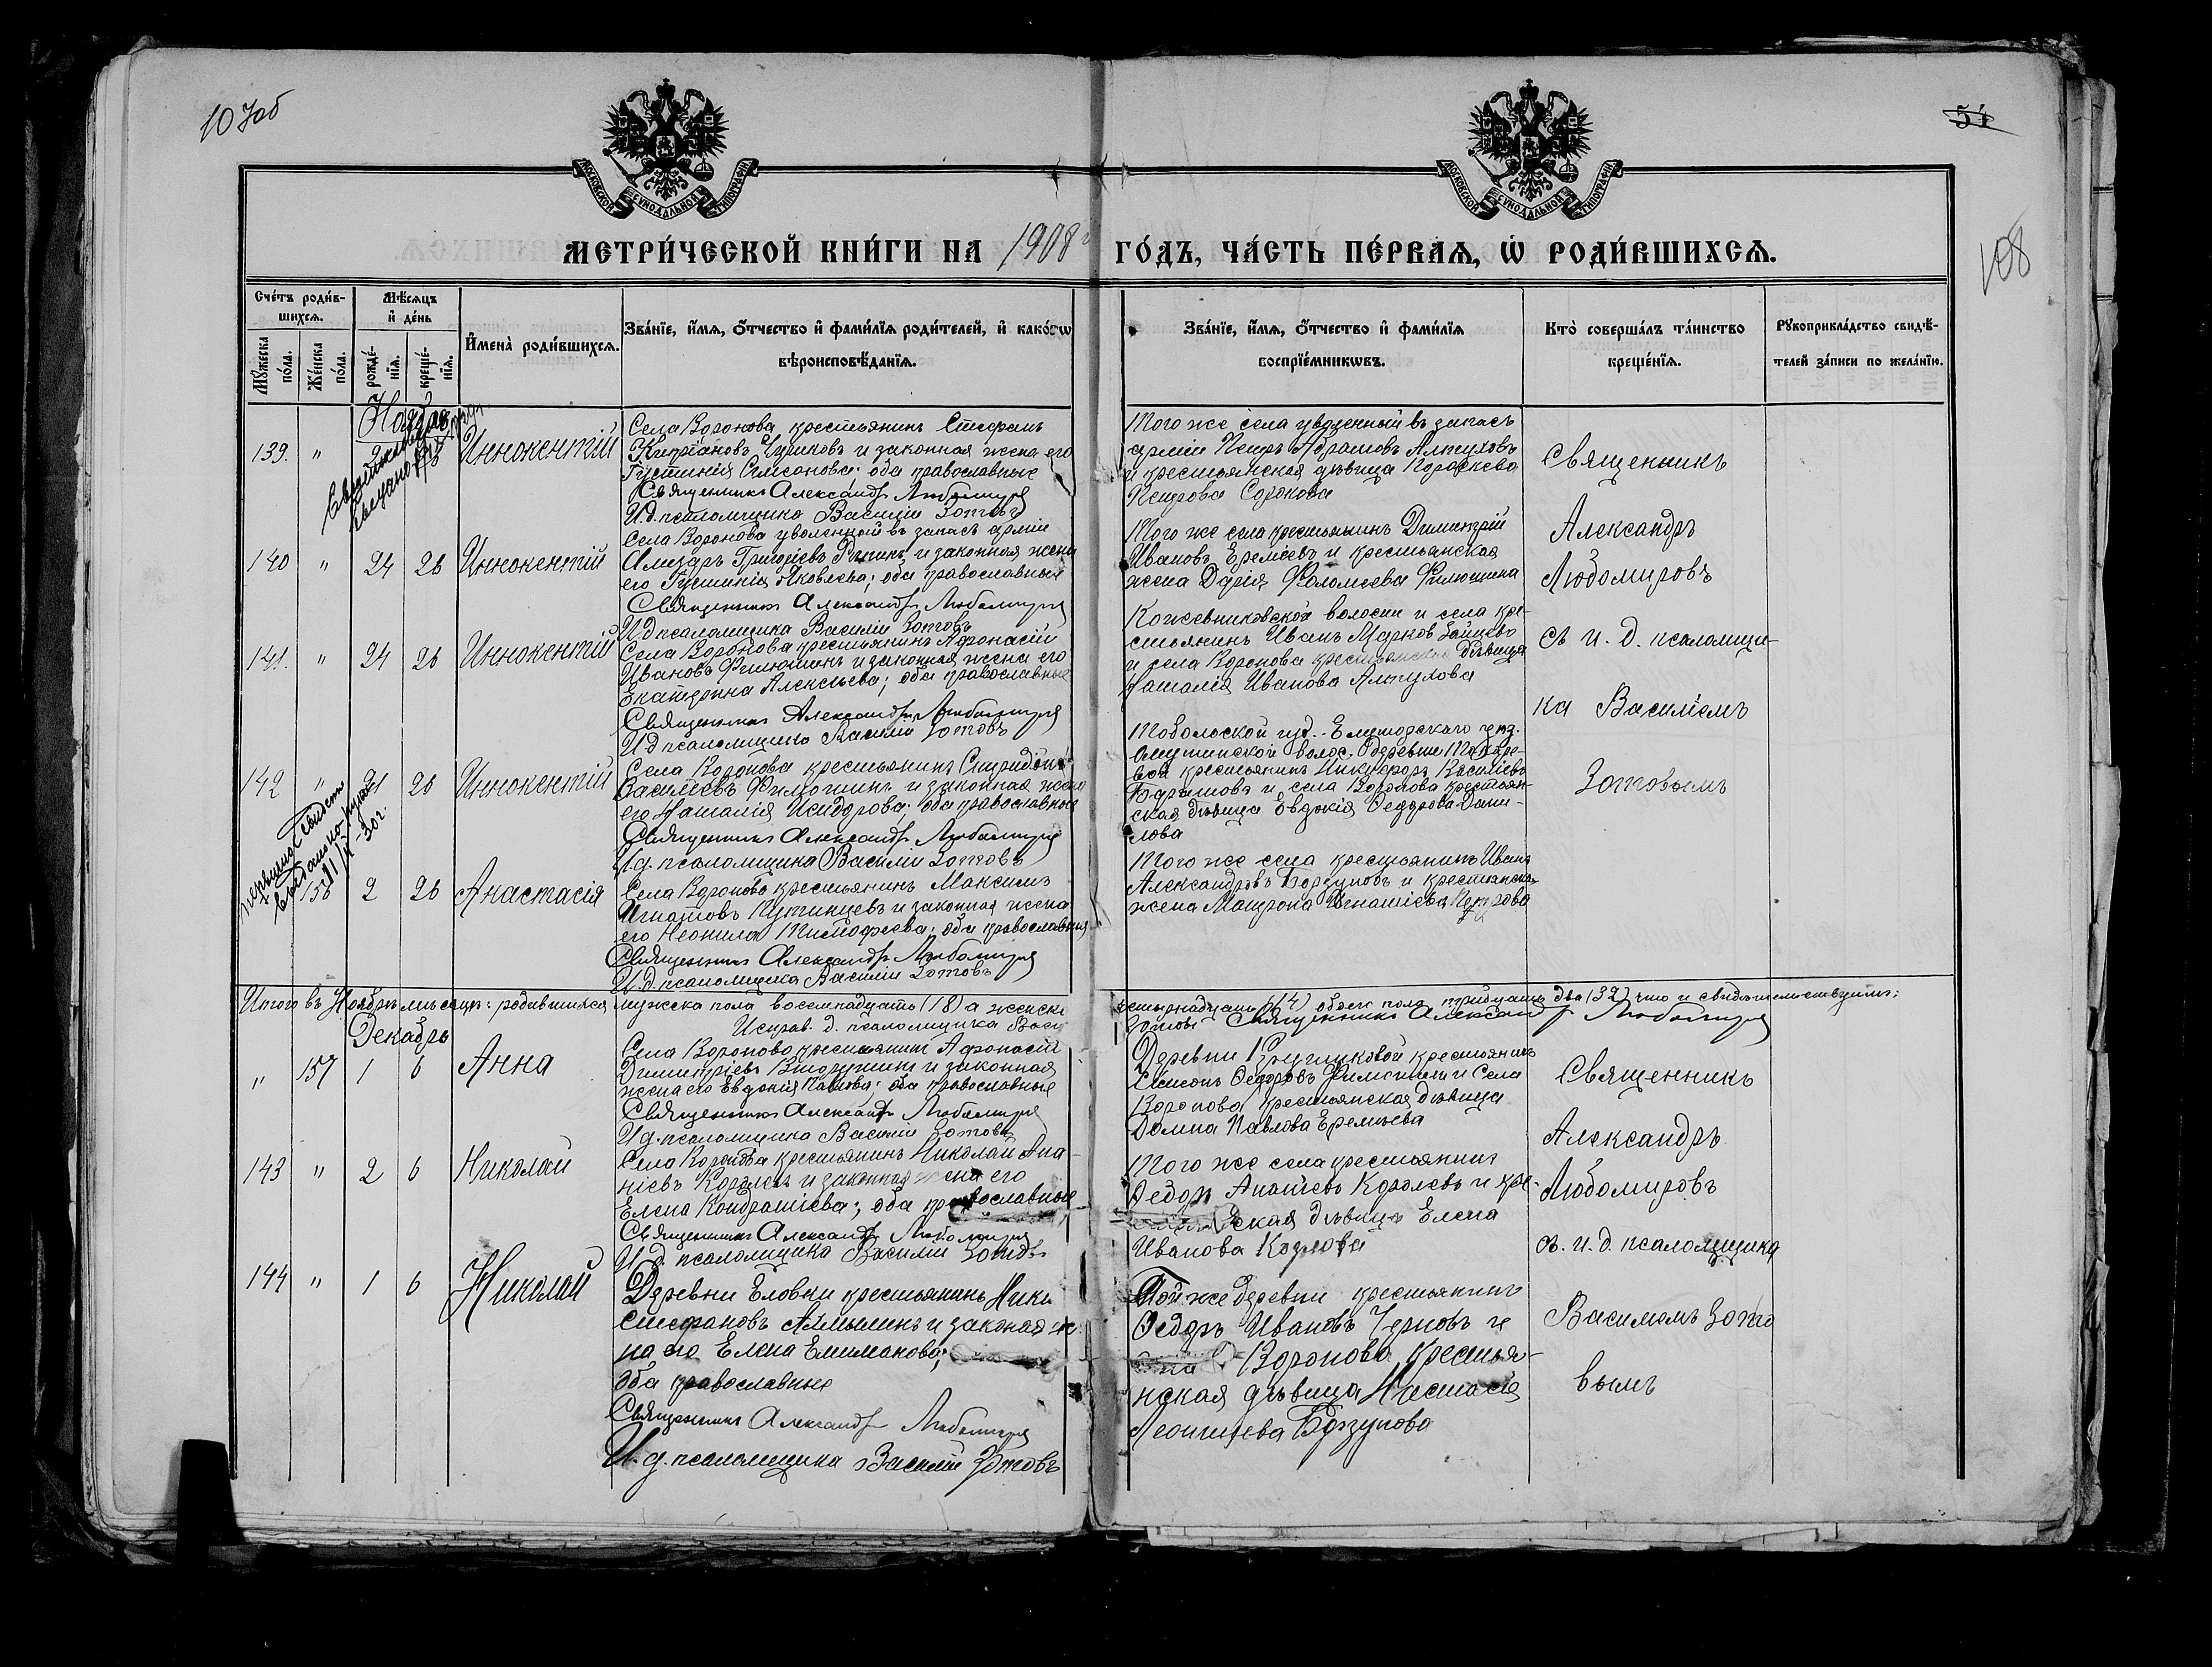 107об
54
108
МОСКОВСКОЙ СѴНОДАЛЬНОЙ ТИПОГРАФІИ
МОСКОВСКОЙ СѴНОДАЛЬНОЙ ТИПОГРАФІИ
МЕТРИ́ЧЕСКОЙ КНИ́ГИ НА 1908 г ГО́ДЪ, ЧА́СТЬ ПЕ́РВАѦ, Ѡ҆ РОДИ́ВШИХСѦ.
Сче́тъ роди́в-
шихсѧ.
Мѣ́сѧцъ
и҆ де́нь
Мꙋ́жеска по́ла.
Же́нска по́ла.
рожде́нїѧ.
креще́нїѧ.
И҆мена̀ роди́вшихсѧ.
Зва́нїе, и҆́мѧ, ѻ҆́тчество и҆ фами́лїѧ роди́телей, и҆ како́гѡ
вѣроисповѣ́данїѧ.
Зва́нїе, и҆́мѧ, ѻ҆́тчество и҆ фами́лїѧ
воспрїе́мникѡвъ.
Кто̀ соверша́лъ та́инство
креще́нїѧ.
Рꙋкоприкла́дство свидѣ́-
телей за́писи по жела́нїю.
Ноябрь
139. "
Иннокентій
Села Воронова крестьянинъ Стефанъ
Кипріановъ Чушковъ и законная жена его
Густинія Симеонова; оба православные
Священникъ Александръ Любомировъ
И.д. псаломщика Василій Зотовъ
Того же села уволенный въ запасъ
арміи Петръ Абрамовъ Алтуховъ
и крестьянская дѣвица Параскева
Петрова Сорокова
140 " 24 26 Иннокентій
Села Воронова уволенный въ запасъ арміи
его Густинія Яковлева; оба православные
Священникъ Александръ Любомировъ
И.д. псаломщика Василій Зотовъ
Того же села крестьянинъ Димитрій
Ивановъ Еремѣевъ и крестьянская
жена Дарія Фоломеева Филюшина
141. " 24 26 Иннокентій
Села Воронова крестьянинъ Афонасій
Ивановъ Филюшинъ и законная жена его
Екатерина Алексѣева; оба православные
Священникъ Александръ Любомировъ
И.д. псаломщика Василій Зотовъ
Кожевниковской волости и села кре-
стьянинъ Иванъ Марковъ Зайцевъ
и села Воронова крестьянская дѣвица
Наталія Иванова Алтухова
142 " 21 26 Иннокентій
Села Воронова крестьянинъ Спиридонъ
Василіевъ Филюшинъ и законная жена
его Наталія Исидорова; оба православные
Священникъ Александръ Любомировъ
И.д. псаломщика Василій Зотовъ
Тобольской губ.
Омутинской волос. деревни
вой крестьянинъ Никифоръ Василіевъ
и села Воронова крестьян-
ская дѣвица Евдокія Федорова Дани-
лова
156 2 26 Анастасія
Села Воронова крестьянинъ Максимъ
Игнатовъ и законная жена
его Неонила Тимофеева; оба православные
Священникъ Александръ Любомировъ
И.д. псаломщика Василій Зотовъ
Того же села крестьянинъ Иванъ
Александровъ Борзуновъ и крестьянская
жена Матрона Игнатіева Петрова
Священникъ
Александръ
Любомировъ
съ и. д. псаломщи-
ка Василіемъ
Зотовымъ
Итого въ Ноябрѣ мѣсяцѣ: родившихся мужска пола восемнадцать (18) а женска четырнадцать (14) обоего пола тридцать два (32) что и свидѣтельствуемъ:
Исправ. д. псаломщика Васи Зотовъ Священникъ Александръ Любомировъ
Декабрь
" 157 1 6 Анна
Села Воронова крестьянинъ Афонасій
Димитріевъ Вторушинъ и законная
жена его Евдокія Павлова; оба православные
Священникъ Александръ Любомировъ
И.д. псаломщика Василій Зотовъ
Деревни крестьянинъ
Симеонъ Федоровъ Филюшинъ и Села
Воронова крестьянская дѣвица
Домна Павлова Еремѣева
143 " 2 6 Николай
Села Воронова крестьянинъ Николай Ана-
ніевъ Королевъ и законная жена его
Елена Кондратіева; оба православные
Священникъ Александръ Любомировъ
И.д. псаломщика Василій Зотовъ
Того же села крестьянинъ
Федоръ Ананіевъ Королевъ и кре-
ская дѣвица Елена
Иванова Козлова
144 " 1 6 Николай
Деревни Еловки крестьянинъ Ники
Стефановъ и законная же-
на его Елена Емилianова;
оба православные
Священникъ Александръ Любомировъ
И.д. псаломщика Василій Зотовъ
Той же деревни крестьянинъ
Федоръ Ивановъ Черновъ и
Воронова крестья-
нская дѣвица Анастасія
Леонтіева Борзунова
Священникъ
Александръ
Любомировъ
съ. и. д. псаломщика
Василіемъ Зото
вымъ